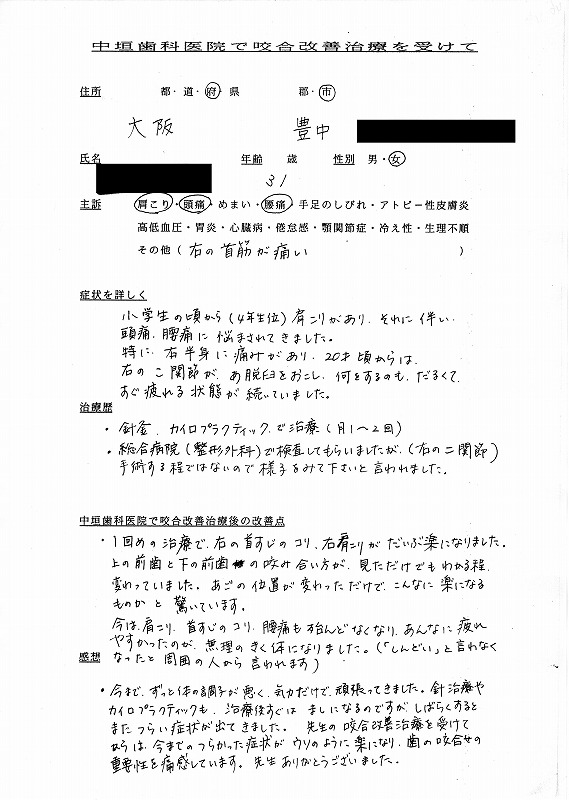 中垣歯科医院で咬合改善治療を受けて
住所 都・道・府・県 郡・市
大阪 豊中
氏名 年齢 歳 性別 男・女
31
主訴 肩こり・頭痛・めまい・腰痛・手足のしびれ・アトピー性皮膚炎
高低血圧・胃炎・心臓病・倦怠感・顎関節症・冷え性・生理不順
その他(右の首筋が痛い)
症状を詳しく
小学生の頃から(4年生位)肩こりがあり、それに伴い、
頭痛、腰痛に悩まされてきました。
特に、右半身に痛みがあり、20才頃からは、
右のこ関節が、あ脱臼をおこし、何をするのも、だるくて、
すぐ疲れる状態が続いていました。
治療歴
・針灸、カイロプラクティック、で治療(月1〜2回)
・総合病院(整形外科)で検査してもらいましたが、(右のこ関節)
手術する程ではないので様子をみて下さいと言われました。
中垣歯科医院で咬合改善治療後の改善点
・1回めの治療で、右の首すじのコリ、右肩こりがだいぶ楽になりました。
上の前歯と下の前歯の咬み合い方が、見ただけでもわかる程、
変わっていました。あごの位置が変わっただけで、こんなに楽になる
ものかと驚いています。
今は、肩こり、首すじのコリ、腰痛も殆んどなくなり、あんなに疲れ
やすかったのが、無理のきく体になりました。(「しんどい」と言わなく
なったと周囲の人から言われます)
感想
・今まで、ずっと体の調子が悪く、気力だけで、頑張ってきました。針治療や
カイロプラクティックも、治療後すぐは、ましになるのですがしばらくすると
またつらい症状が出てきました。先生の咬合改善治療を受けて
からは、今までのつらかった症状がウソのように楽になり、歯の咬合せの
重要性を痛感しています。先生ありがとうございました。